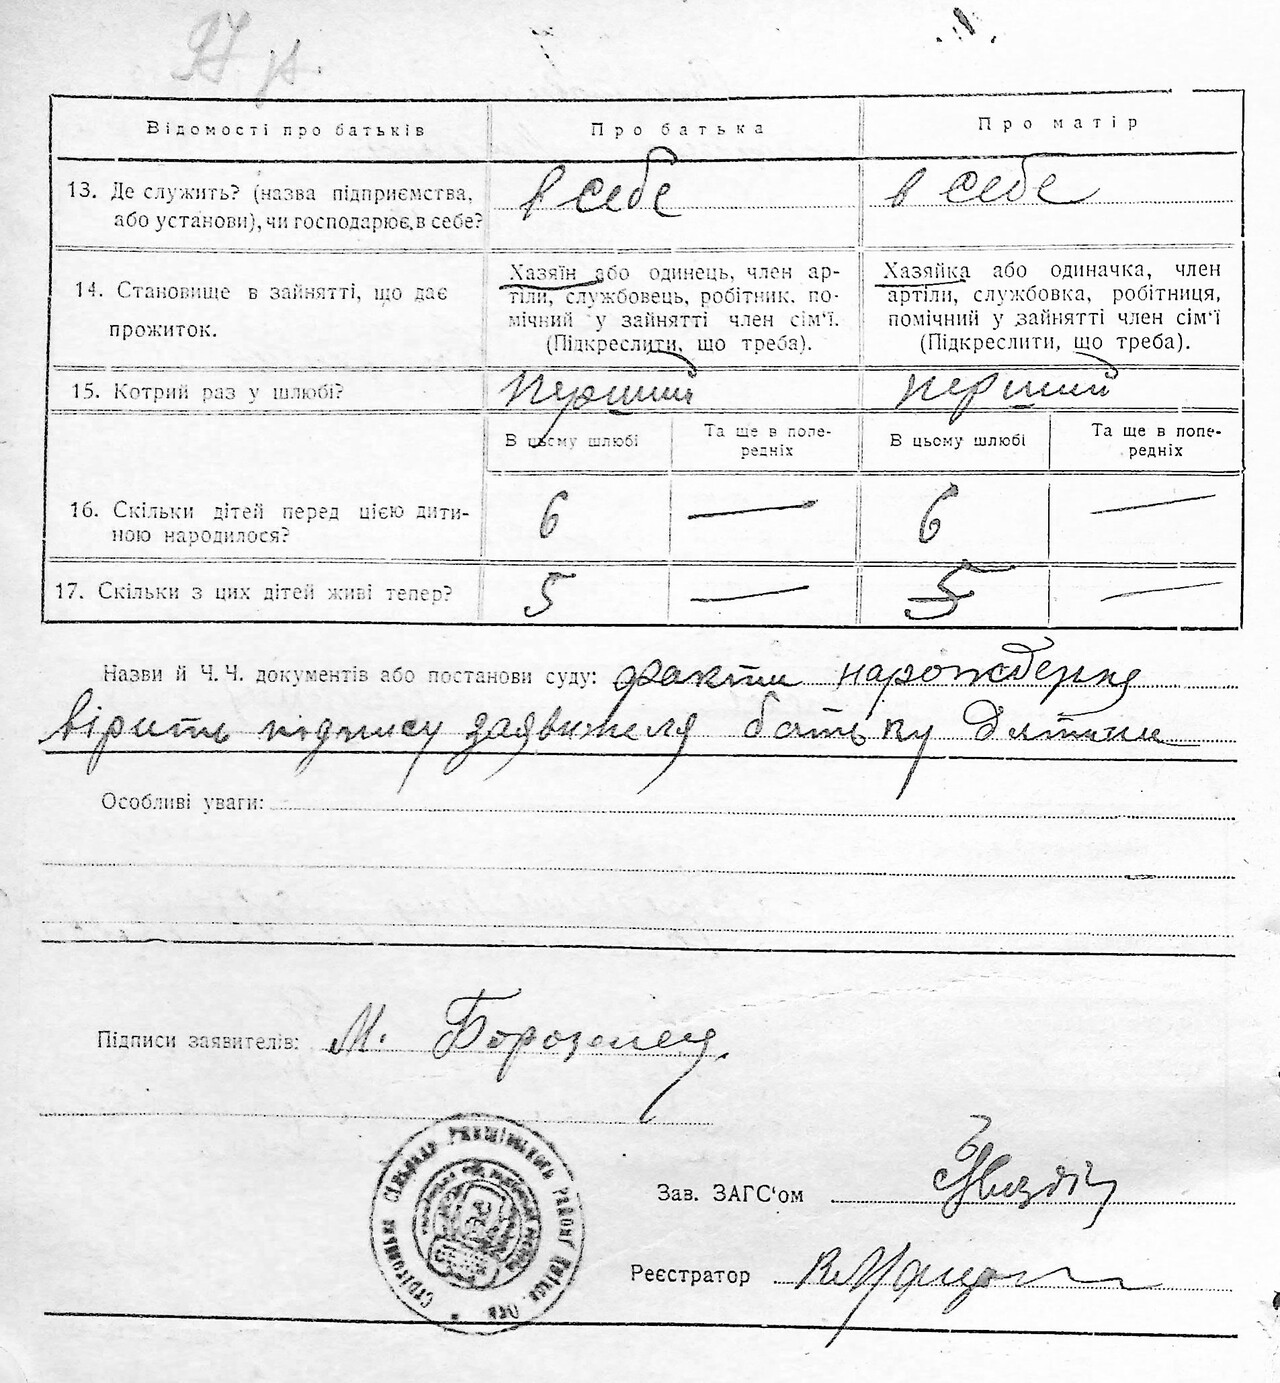 Відомості про батьків
Про батька
Про матір
13. Де служить? (назва підприємства, або установи), чи господарює в себе?
в себе
в себе
14. Становище в зайнятті, що дає прожиток.
Хазяїн або одинець, член ар-
тіли, службовець, робітник, по-
мічний у зайнятті член сім'ї.
(Підкреслити, що треба).
Хазяйка або одиначка, член
артіли, службовка, робітниця,
помічний у зайнятті член сім'ї
(Підкреслити, що треба).
15. Котрий раз у шлюбі?
перший
перший
В цьому шлюбі
Та ще в попе-
редніх
В цьому шлюбі
Та ще в попе-
редніх
16. Скільки дітей перед цією дити-
ною народилося?
6
—
6
—
17. Скільки з цих дітей живі тепер?
5
—
5
—
Назви й Ч. Ч. документів або постанови суду: факти нарождення
вірить підпису заявителя батьку дитини
Особливі уваги:
Підписи заявителів: М.
Зав. ЗАГС'ом
Реєстратор